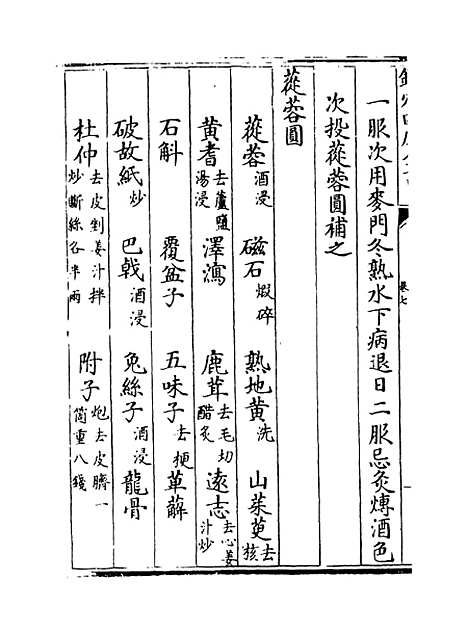 一服次用麥門冬熟水下病退日二服忌灸煿酒色
次投蓯蓉圓補之
蓯蓉圓
蓯蓉酒浸 磁石煆碎 熟地黄洗 山茱萸去核
黄耆去蘆鹽湯浸 澤瀉 鹿茸去毛切醋炙 遠志去心姜汁炒
石斛 覆盆子 五味子去梗 萆薢
破故紙炒 巴戟酒浸 兔絲子酒浸 龍骨
杜仲去皮剉姜汁拌炒斷絲各半兩 附子炮去皮臍一箇重八錢
卷七